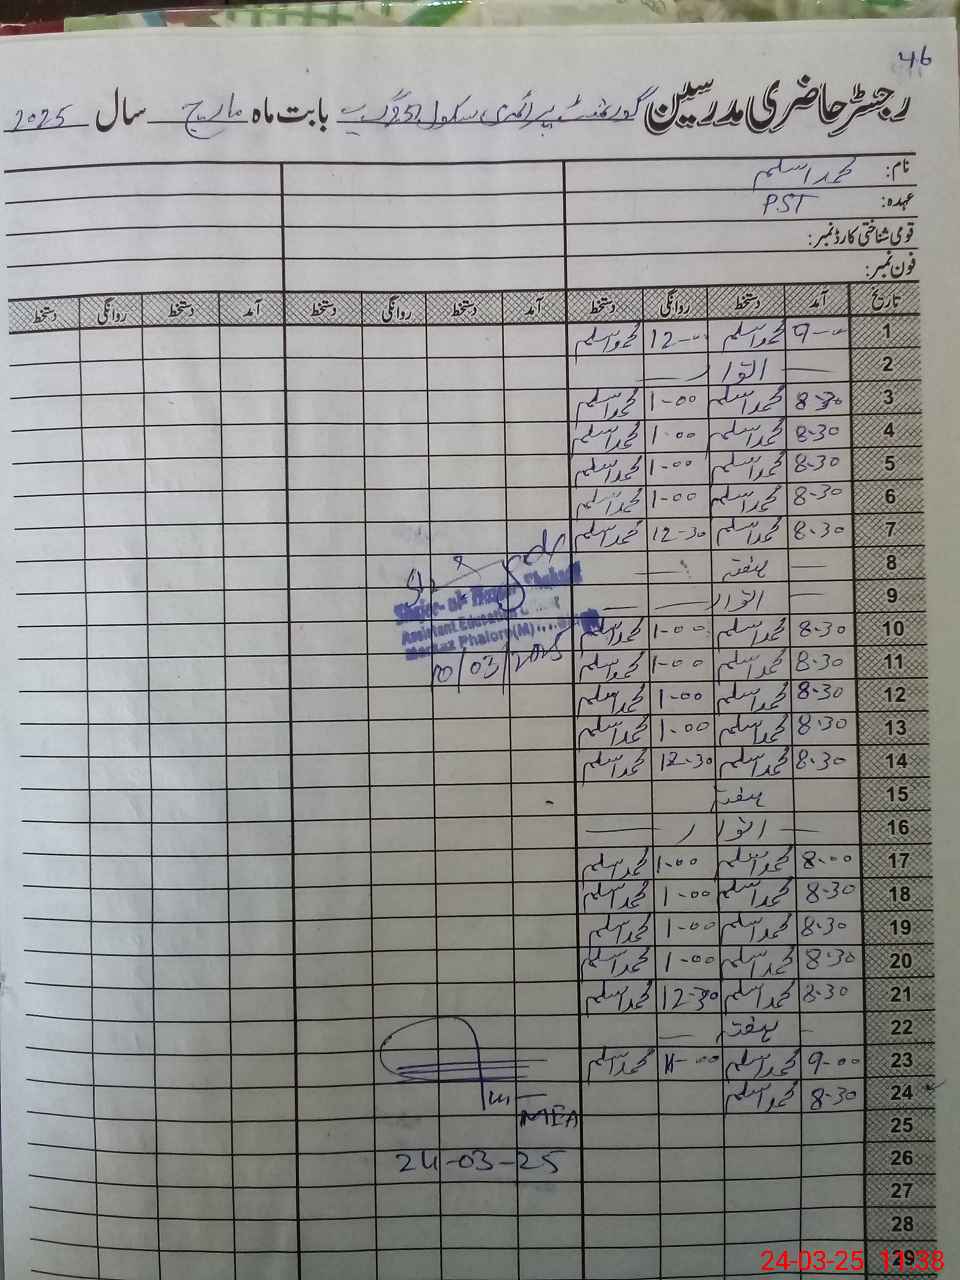 46
رجسٹر حاضری مدرسین گورنمنٹ پرائمری سکول بابت ماہ مارچ سال 2025
نام: محمد اسلم
عہدہ: PST
قومی شناختی کارڈ نمبر:
فون نمبر:
تاریخ آمد دستخط روانگی دستخط آمد دستخط روانگی دستخط آمد دستخط روانگی دستخط
1 9-00 محمد اسلم 12-00 محمد اسلم
2 اتوار
3 8-30 محمد اسلم 1-00 محمد اسلم
4 8-30 محمد اسلم 1-00 محمد اسلم
5 8-30 محمد اسلم 1-00 محمد اسلم
6 8-30 محمد اسلم 1-00 محمد اسلم
7 8-30 محمد اسلم 12-30 محمد اسلم
8 ہفتہ
9 اتوار
Assistant Education
Markaz Phalora (M)
10 8-30 محمد اسلم 1-00 محمد اسلم
10/03/2025
11 8-30 محمد اسلم 1-00 محمد اسلم
12 8-30 محمد اسلم 1-00 محمد اسلم
13 8-30 محمد اسلم 1-00 محمد اسلم
14 8-30 محمد اسلم 12-30 محمد اسلم
15 ہفتہ
16 اتوار
17 8-00 محمد اسلم 1-00 محمد اسلم
18 8-30 محمد اسلم 1-00 محمد اسلم
19 8-30 محمد اسلم 1-00 محمد اسلم
20 8-30 محمد اسلم 1-00 محمد اسلم
21 8-30 محمد اسلم 12-30 محمد اسلم
22 ہفتہ
23 9-00 محمد اسلم محمد اسلم
24 8-30 محمد اسلم
MEA
25
26
24-03-25
27
28
29
24-03-25 11:38